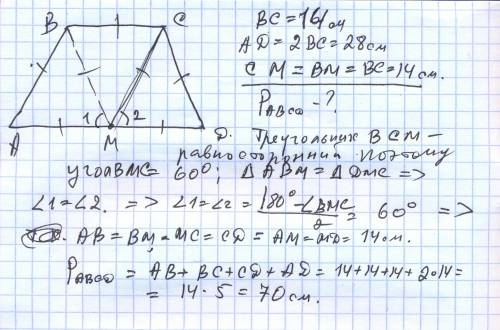 B C
A M D.
1 2
BC = 14 см
AD = 2BC = 28 см
CM = BM = BC = 14 см.
P_ABCD - ?
Треугольник BCM –
равносторонний Поэтому
угол BMC = 60°; △ABM = △DMC =>
∠1 = ∠2. => ∠1 = ∠2 = (180° - ∠BMC)/2 = 60° =>
AB = BM = MC = CD = AM = MD = 14 см.
P_ABCD = AB + BC + CD + AD = 14 + 14 + 14 + 2·14 =
= 14 · 5 = 70 см.